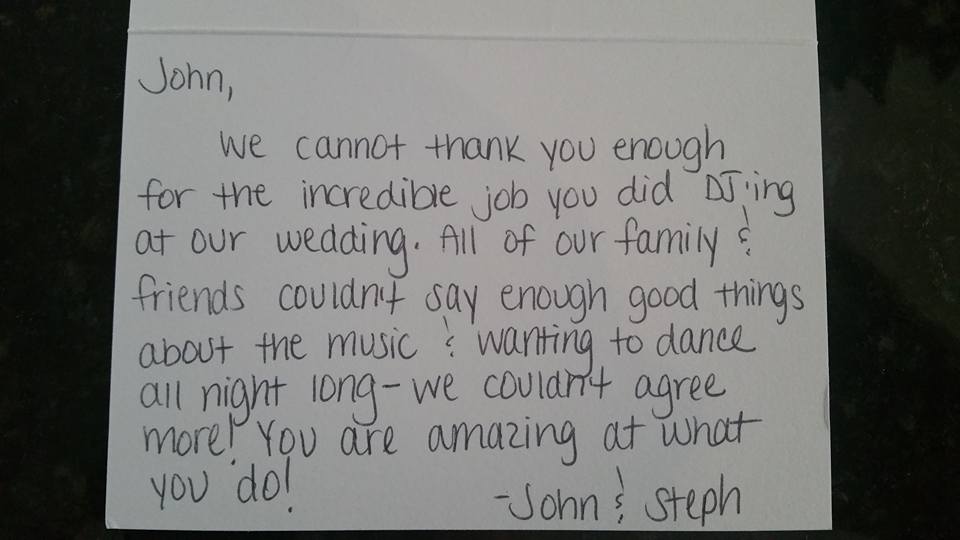 John,
We cannot thank you enough
for the incredible job you did DJ'ing
at our wedding. All of our family &
friends couldn't say enough good things
about the music & wanting to dance
all night long - we couldn't agree
more! You are amazing at what
you do!
- John & Steph